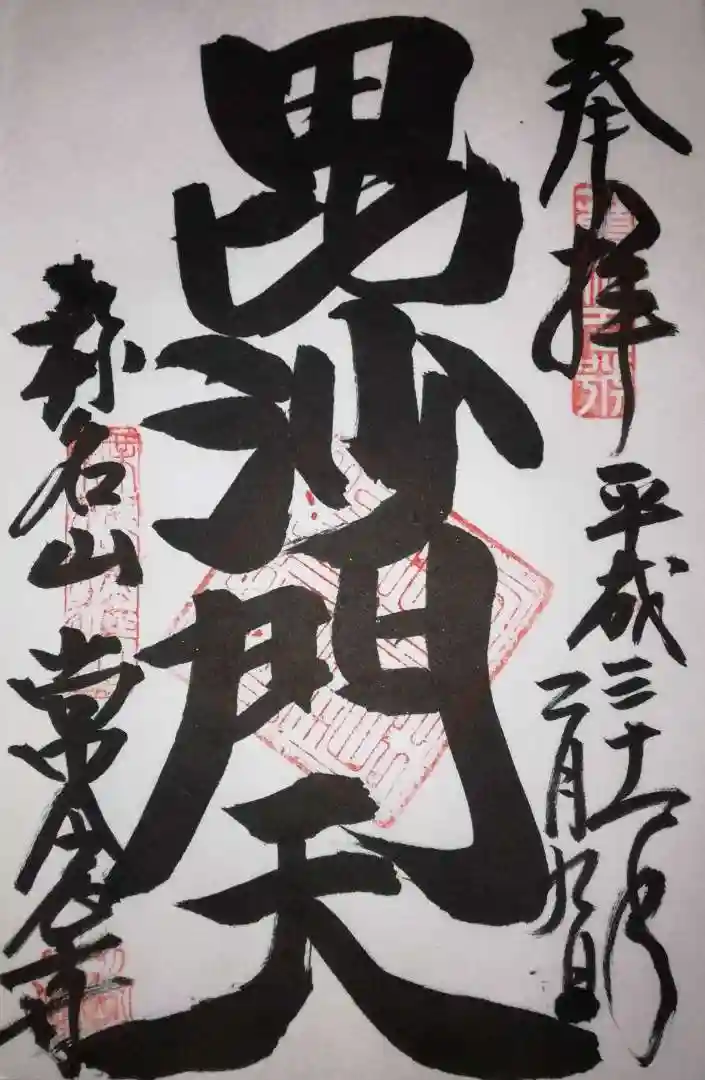 奉拝
平成三十一年
二月九日
毘沙門天
名山
常念寺